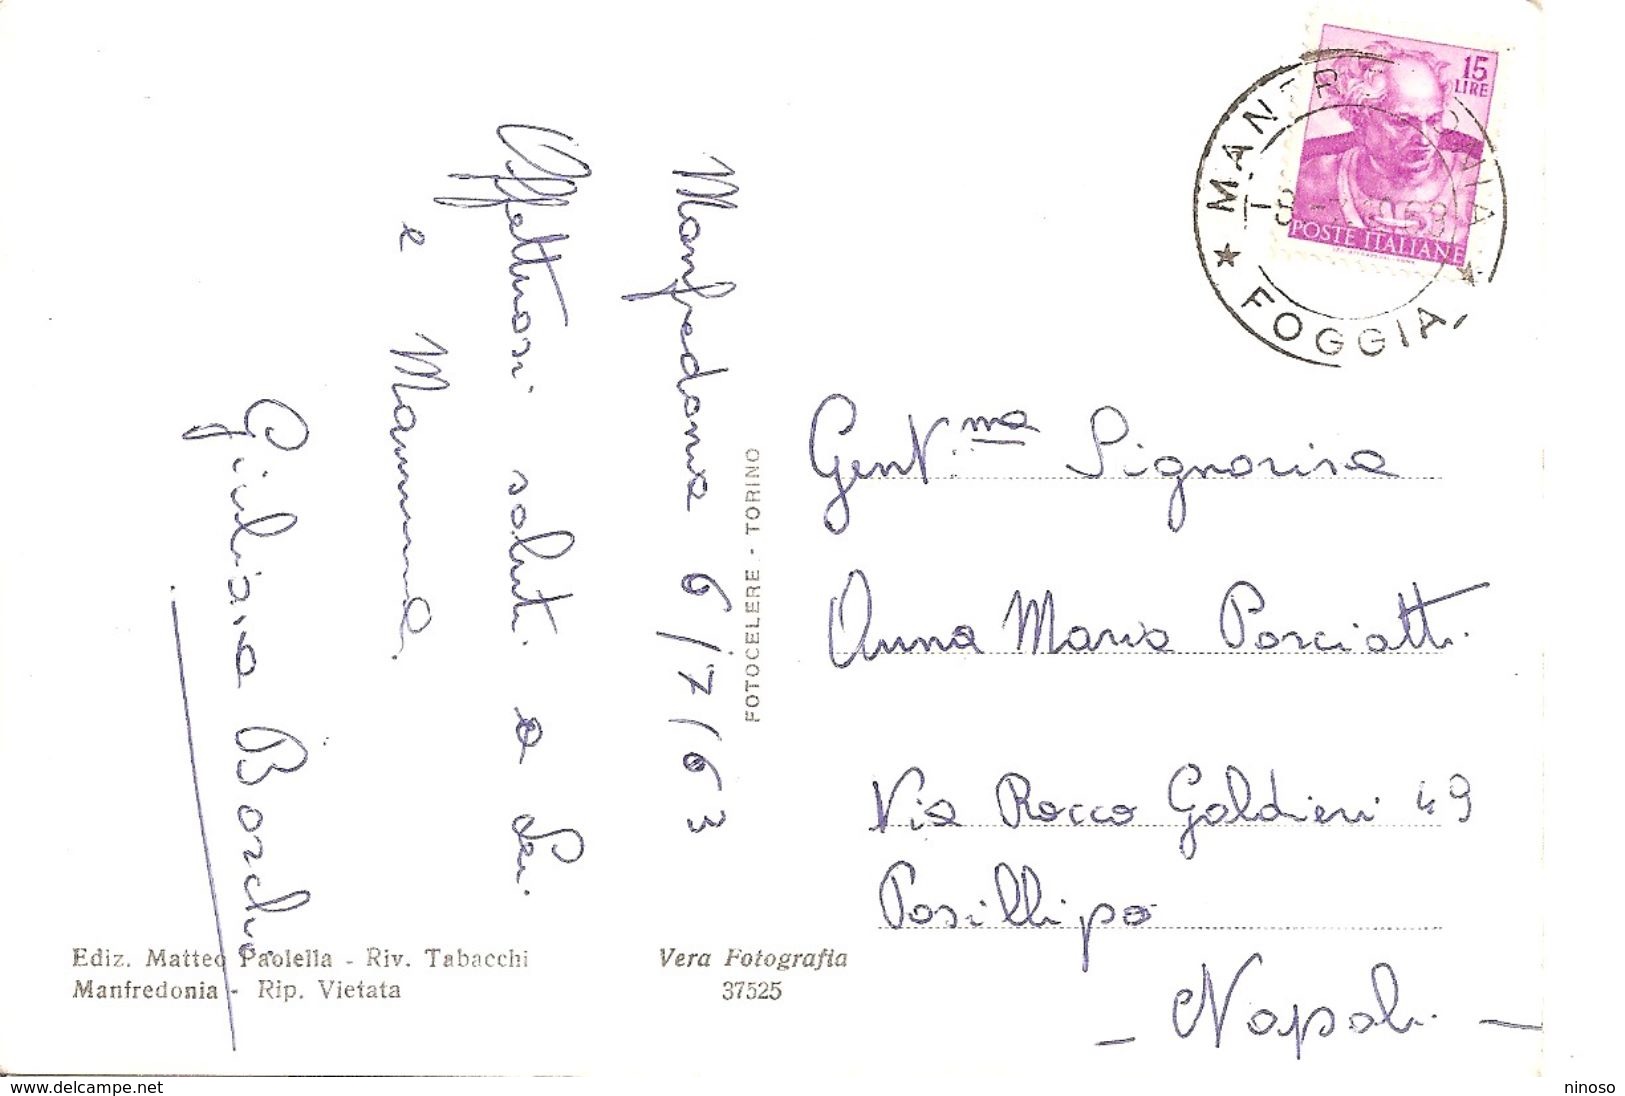 Manfredonia 6/7/63
Affettuosi saluti a Lei
e Mamma.
Giuliana
FOTOCELERE - TORINO
15
LIRE
POSTE ITALIANE
FOGGIA
Gent.ma Signorina
Anna Maria Porciatti
Via Rocco Galdieri 49
Posillipo
- Napoli -
Ediz. Matteo Paolella - Riv. Tabacchi
Manfredonia - Rip. Vietata
Vera Fotografia
37525
www.delcampe.net
ninoso